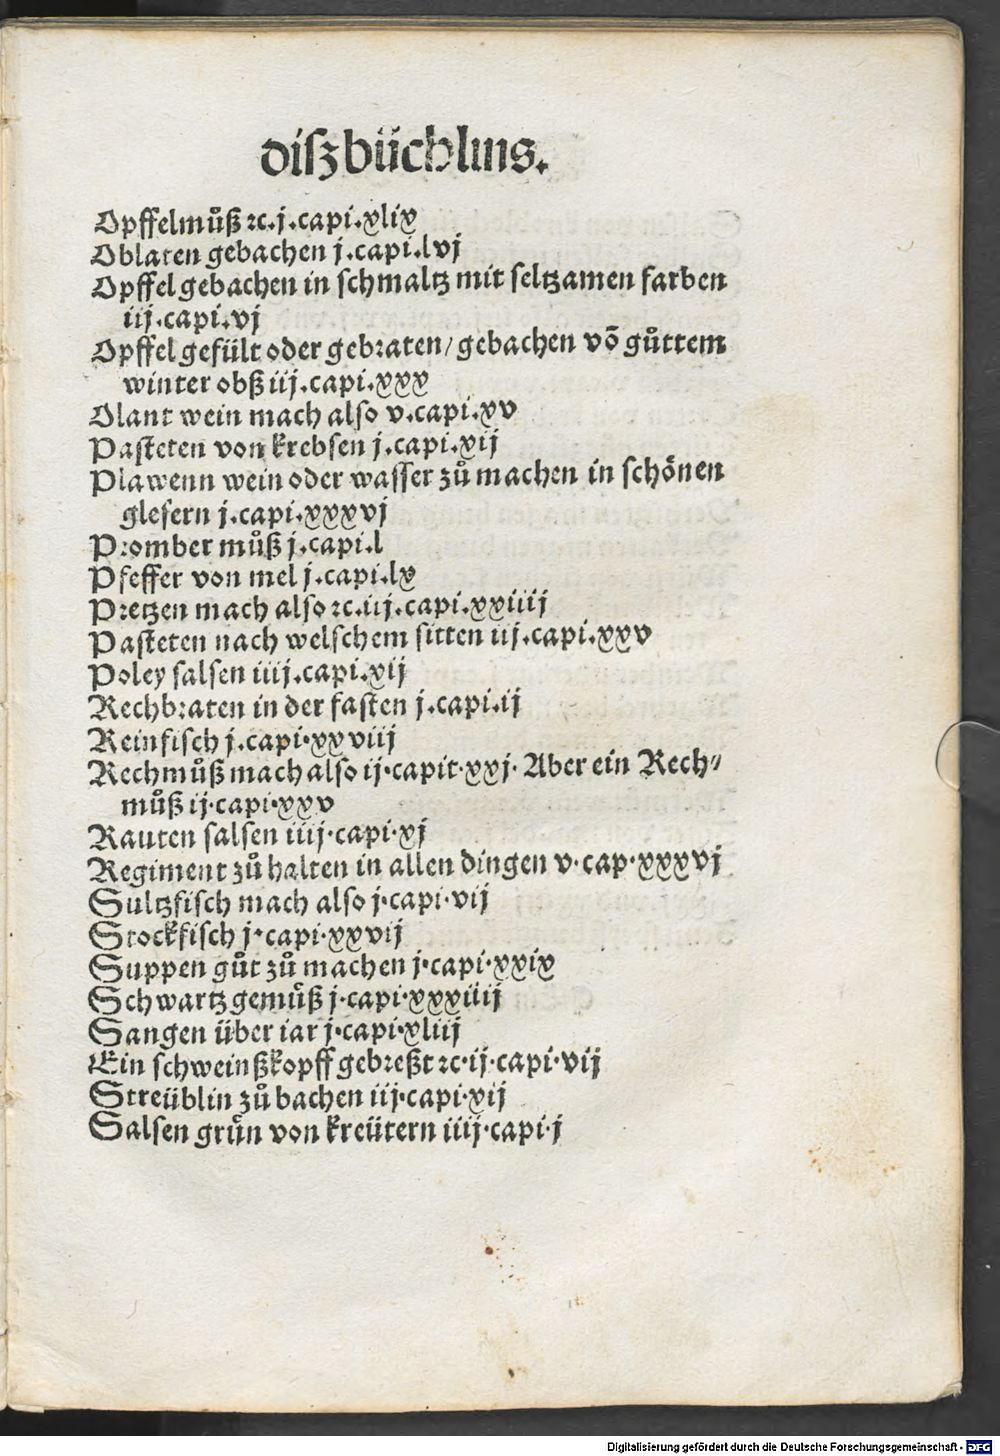 diſzbüchlins.
Opffelmůß ꝛc.j.capi.xlix
Oblaten gebachen j.capi.lvj
Opffel gebachen in ſchmaltz mit ſeltzamen farben
iij.capi.vj
Opffel gefült oder gebꝛaten/gebachen võ gůttem
winter obß iij.capi.xxx
Olant wein mach alſo v.capi.xv
Paſteten von krebſen j.capi.xij
Plawenn wein oder waſſer zů machen in ſchönen
gleſern j.capi.xxxvj
Pꝛomber můß j.capi.l
Pfeffer von mel j.capi.lx
Pretzen mach alſo ꝛc.iij.capi.xxiiij
Paſteten nach welſchem ſitten iij.capi.xxv
Poley ſalſen iiij.capi.xij
Rechbꝛaten in der faſten j.capi.ij
Reinfiſch j.capi.xxviij
Rechmůß mach alſo ij.capit.xxj. Aber ein Rech⸗
můß ij.capi.xxv
Rauten ſalſen iiij.capi.xj
Regiment zů halten in allen dingen v.cap.xxxvj
Sultzfiſch mach alſo j.capi.vij
Stockfiſch j.capi.xxvij
Suppen gůt zů machen j.capi.xxix
Schwartz gemůß j.capi.xxxiiij
Sangen über iar j.capi.xliij
Ein ſchweinßkopff gebꝛeßt ꝛc.ij.capi.vij
Streüblin zů bachen iij.capi.xij
Salſen grůn von kreütern iiij.capi.j
Digitalisierung gefördert durch die Deutsche Forschungsgemeinschaft - DFG